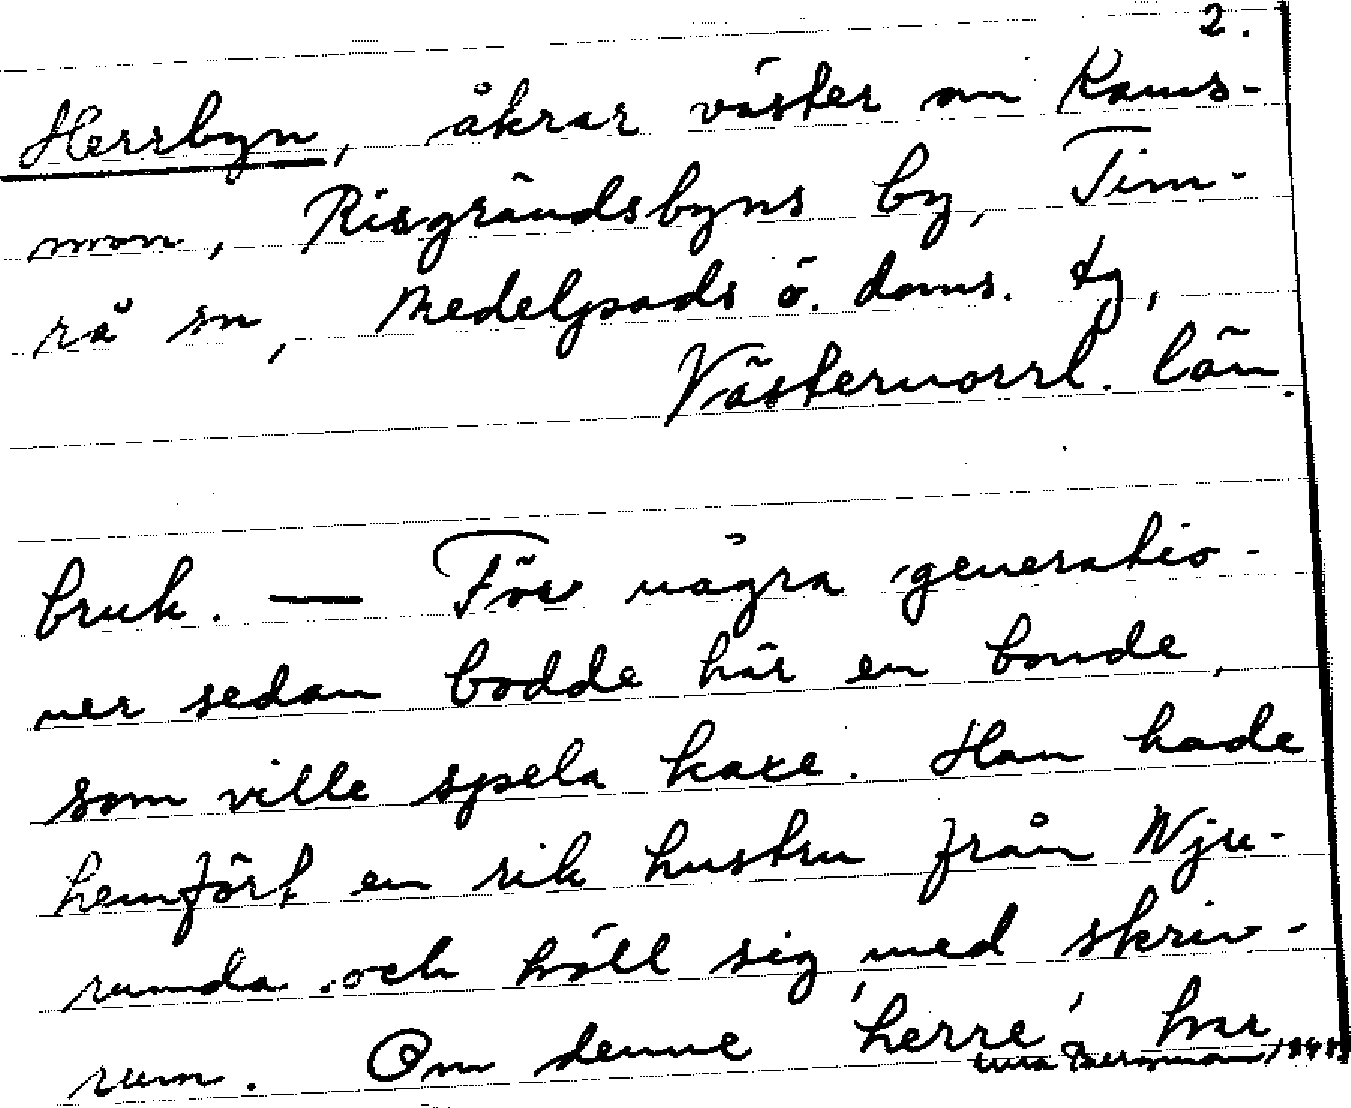 2.
Herrbyn, åkrar väster om Rams-
mon, Risgrändsbyns by, Tim-
rå sn, Medelpads ö. doms. tg,
Västernorrl. län.
bruk. — För några generatio-
ner sedan bodde här en bonde,
som ville spela kaxe. Han hade
hemfört en rik hustru från Nju-
runda och höll sig med skriv-
rum. Om denne 'herre' har